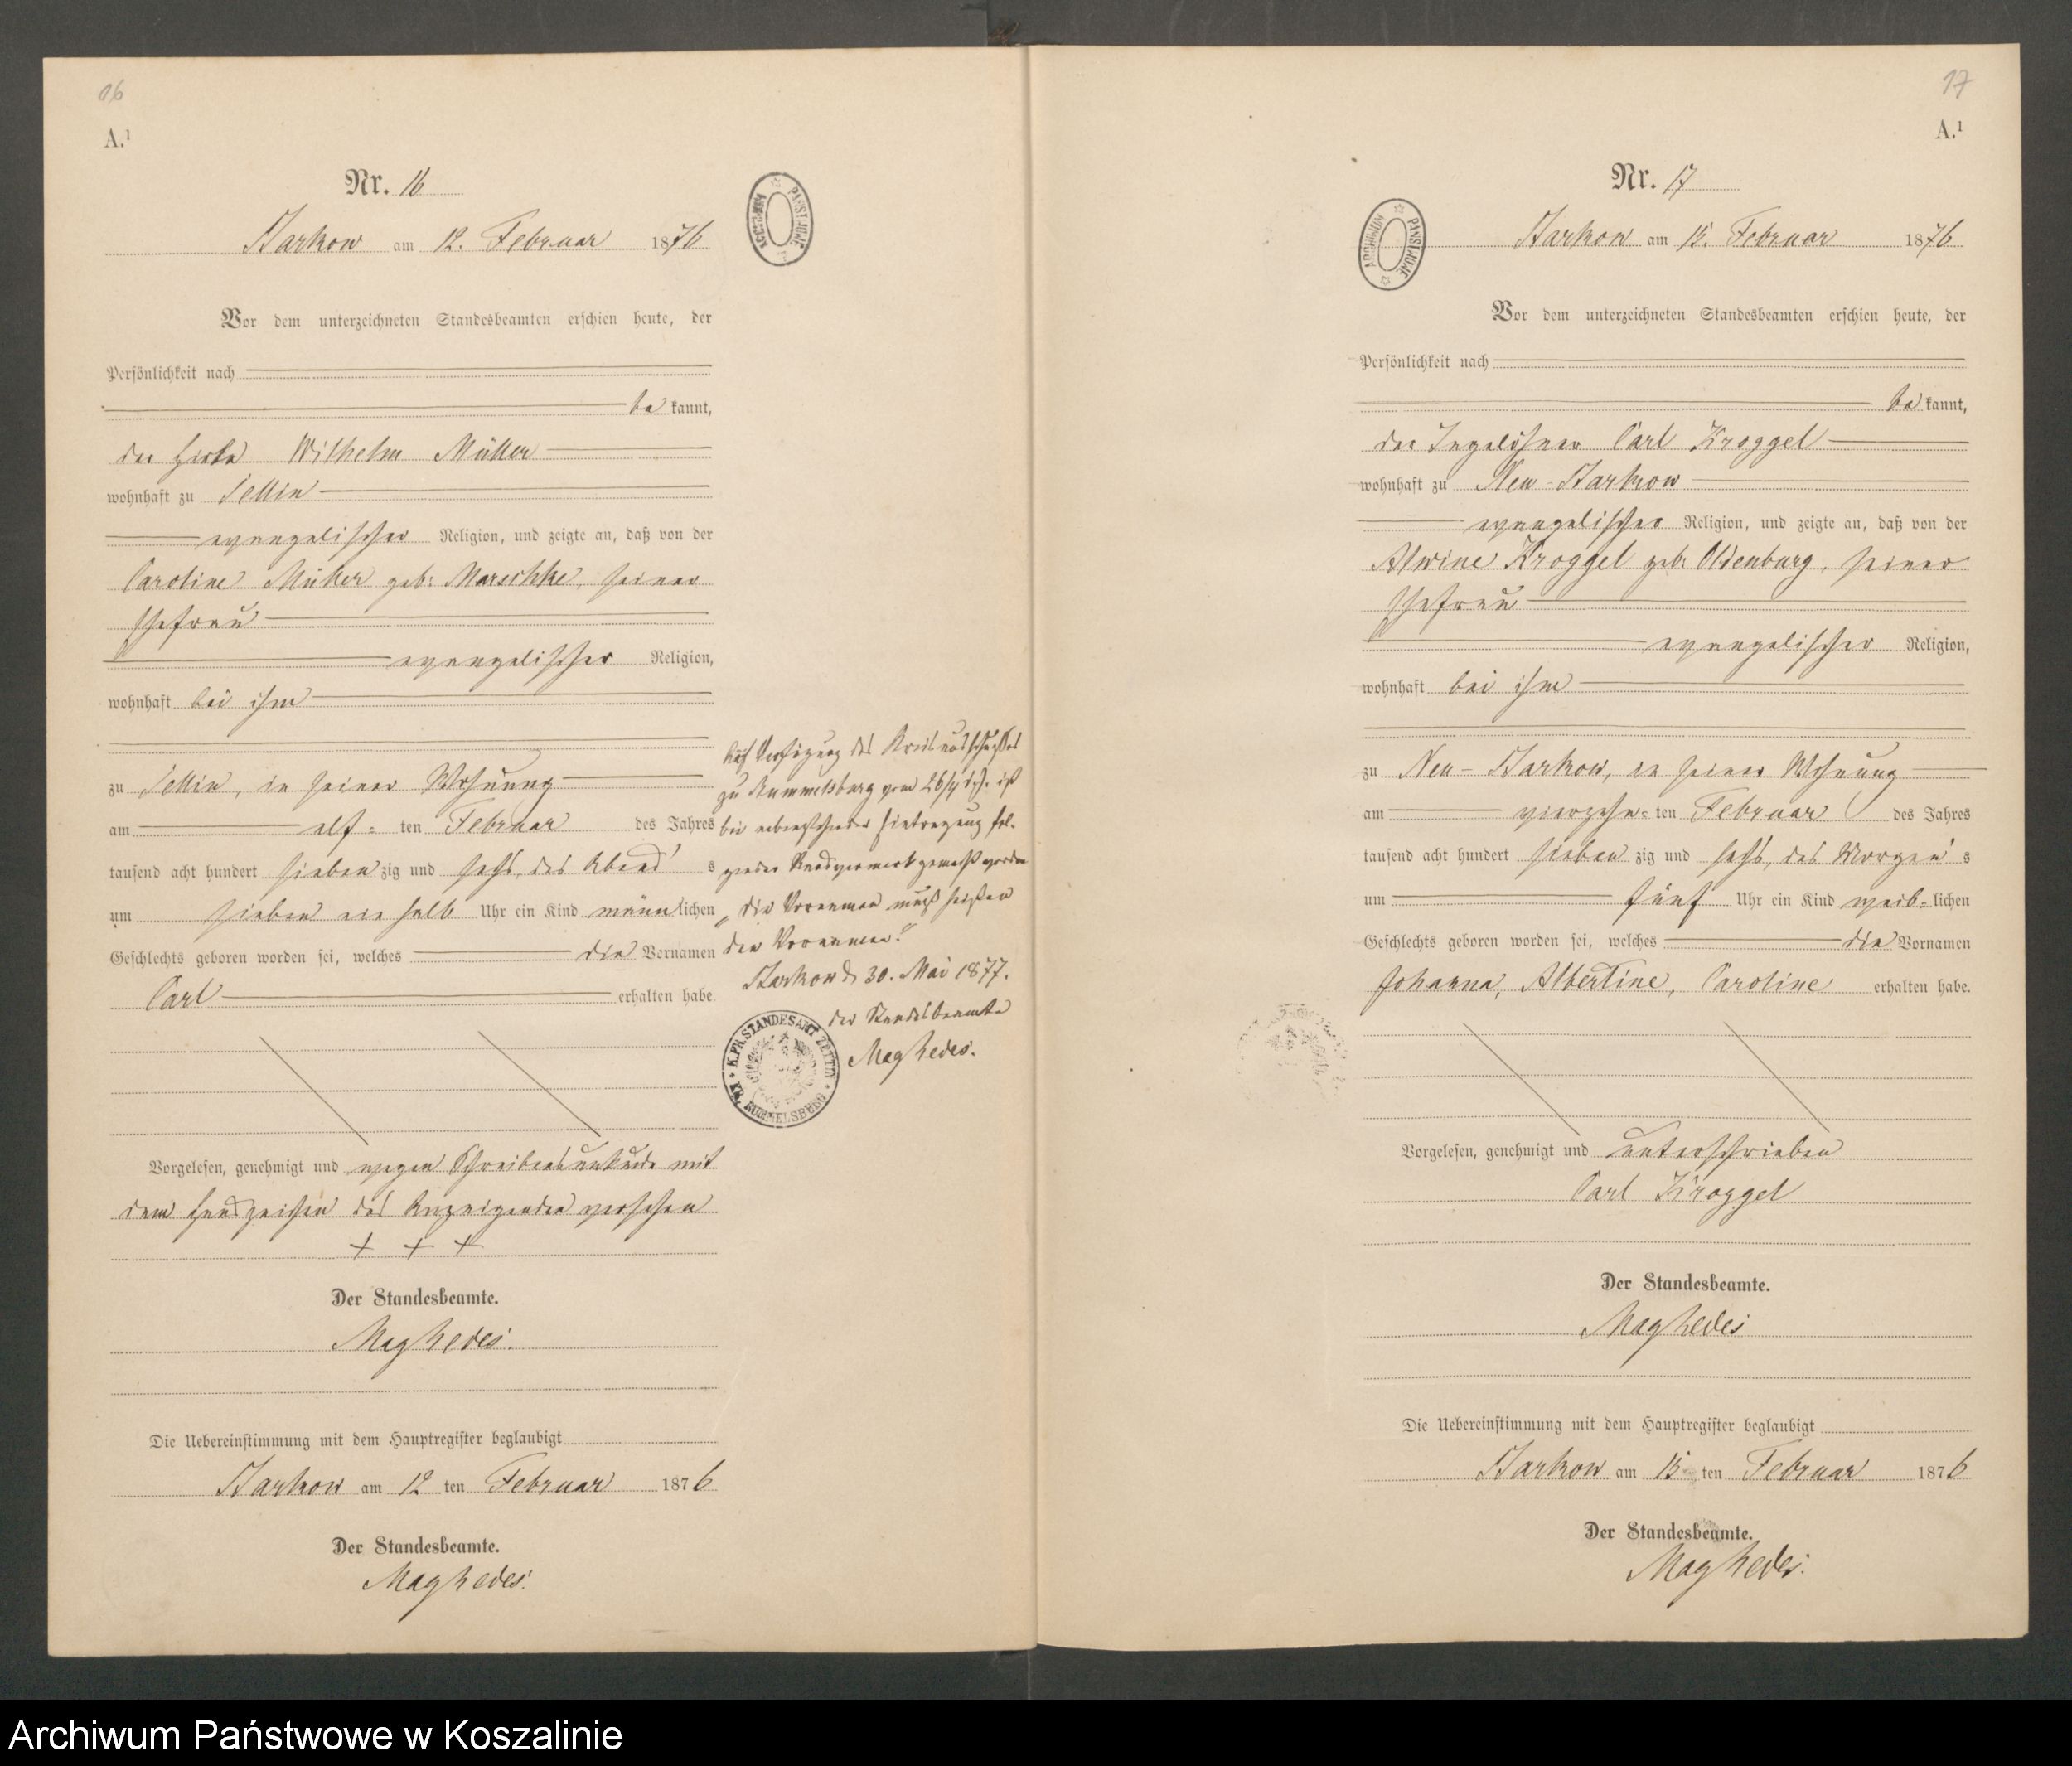 16
A.¹
Nr. 16
Starkow am 12. Februar 1876
ARCHIWUM PAŃSTWOWE
Vor dem unterzeichneten Standesbeamten erschien heute, der
Persönlichkeit nach
bekannt,
der Hirte Wilhelm Müller
wohnhaft zu
evangelischer Religion, und zeigte an, daß von der
Caroline Müller geb: Marschke, seiner
Ehefrau
evangelischer Religion,
wohnhaft bei ihm
zu in seiner Wohnung
am elf=ten Februar des Jahres
tausend acht hundert siebenzig und sechs, des Abends
um sieben ein halb Uhr ein Kind männlichen
Geschlechts geboren worden sei, welches die Vornamen
Carl erhalten habe.
Vorgelesen, genehmigt und wegen Schreibensunkunde mit
dem Handzeichen des Anzeigenden versehen
+ + +
Der Standesbeamte.
Maghedei.
Die Uebereinstimmung mit dem Hauptregister beglaubigt
Starkow am 12ten Februar 1876
Der Standesbeamte.
Maghedei.
Auf Verfügung des Kreisausschusses
zu Rummelsburg vom 26/4 d. J. ist
bei nebenstehender Eintragung fol-
gender Randvermerk gemacht worden
„die Vornamen muß heißen
den Vornamen."
Starkow d. 30. Mai 1877.
der Standesbeamte
Maghedei.
K. PR. STANDESAMT ZETTIN * KR. RUMMELSBURG *
17
A.¹
Nr. 17
Starkow am 15. Februar 1876
ARCHIWUM PAŃSTWOWE
Vor dem unterzeichneten Standesbeamten erschien heute, der
Persönlichkeit nach
bekannt,
der Tagelöhner Carl Kroggel
wohnhaft zu Neu-Starkow
evangelischer Religion, und zeigte an, daß von der
Alwine Kroggel geb: Oldenburg, seiner
Ehefrau
evangelischer Religion,
wohnhaft bei ihm
zu Neu-Starkow, in seiner Wohnung
am vierzehn=ten Februar des Jahres
tausend acht hundert siebenzig und sechs, des Morgens
um fünf Uhr ein Kind weib=lichen
Geschlechts geboren worden sei, welches die Vornamen
Johanna, Albertine, Caroline erhalten habe.
Vorgelesen, genehmigt und unterschrieben
Carl Kroggel
Der Standesbeamte.
Maghedei
Die Uebereinstimmung mit dem Hauptregister beglaubigt
Starkow am 15ten Februar 1876
Der Standesbeamte.
Maghedei.
Archiwum Państwowe w Koszalinie